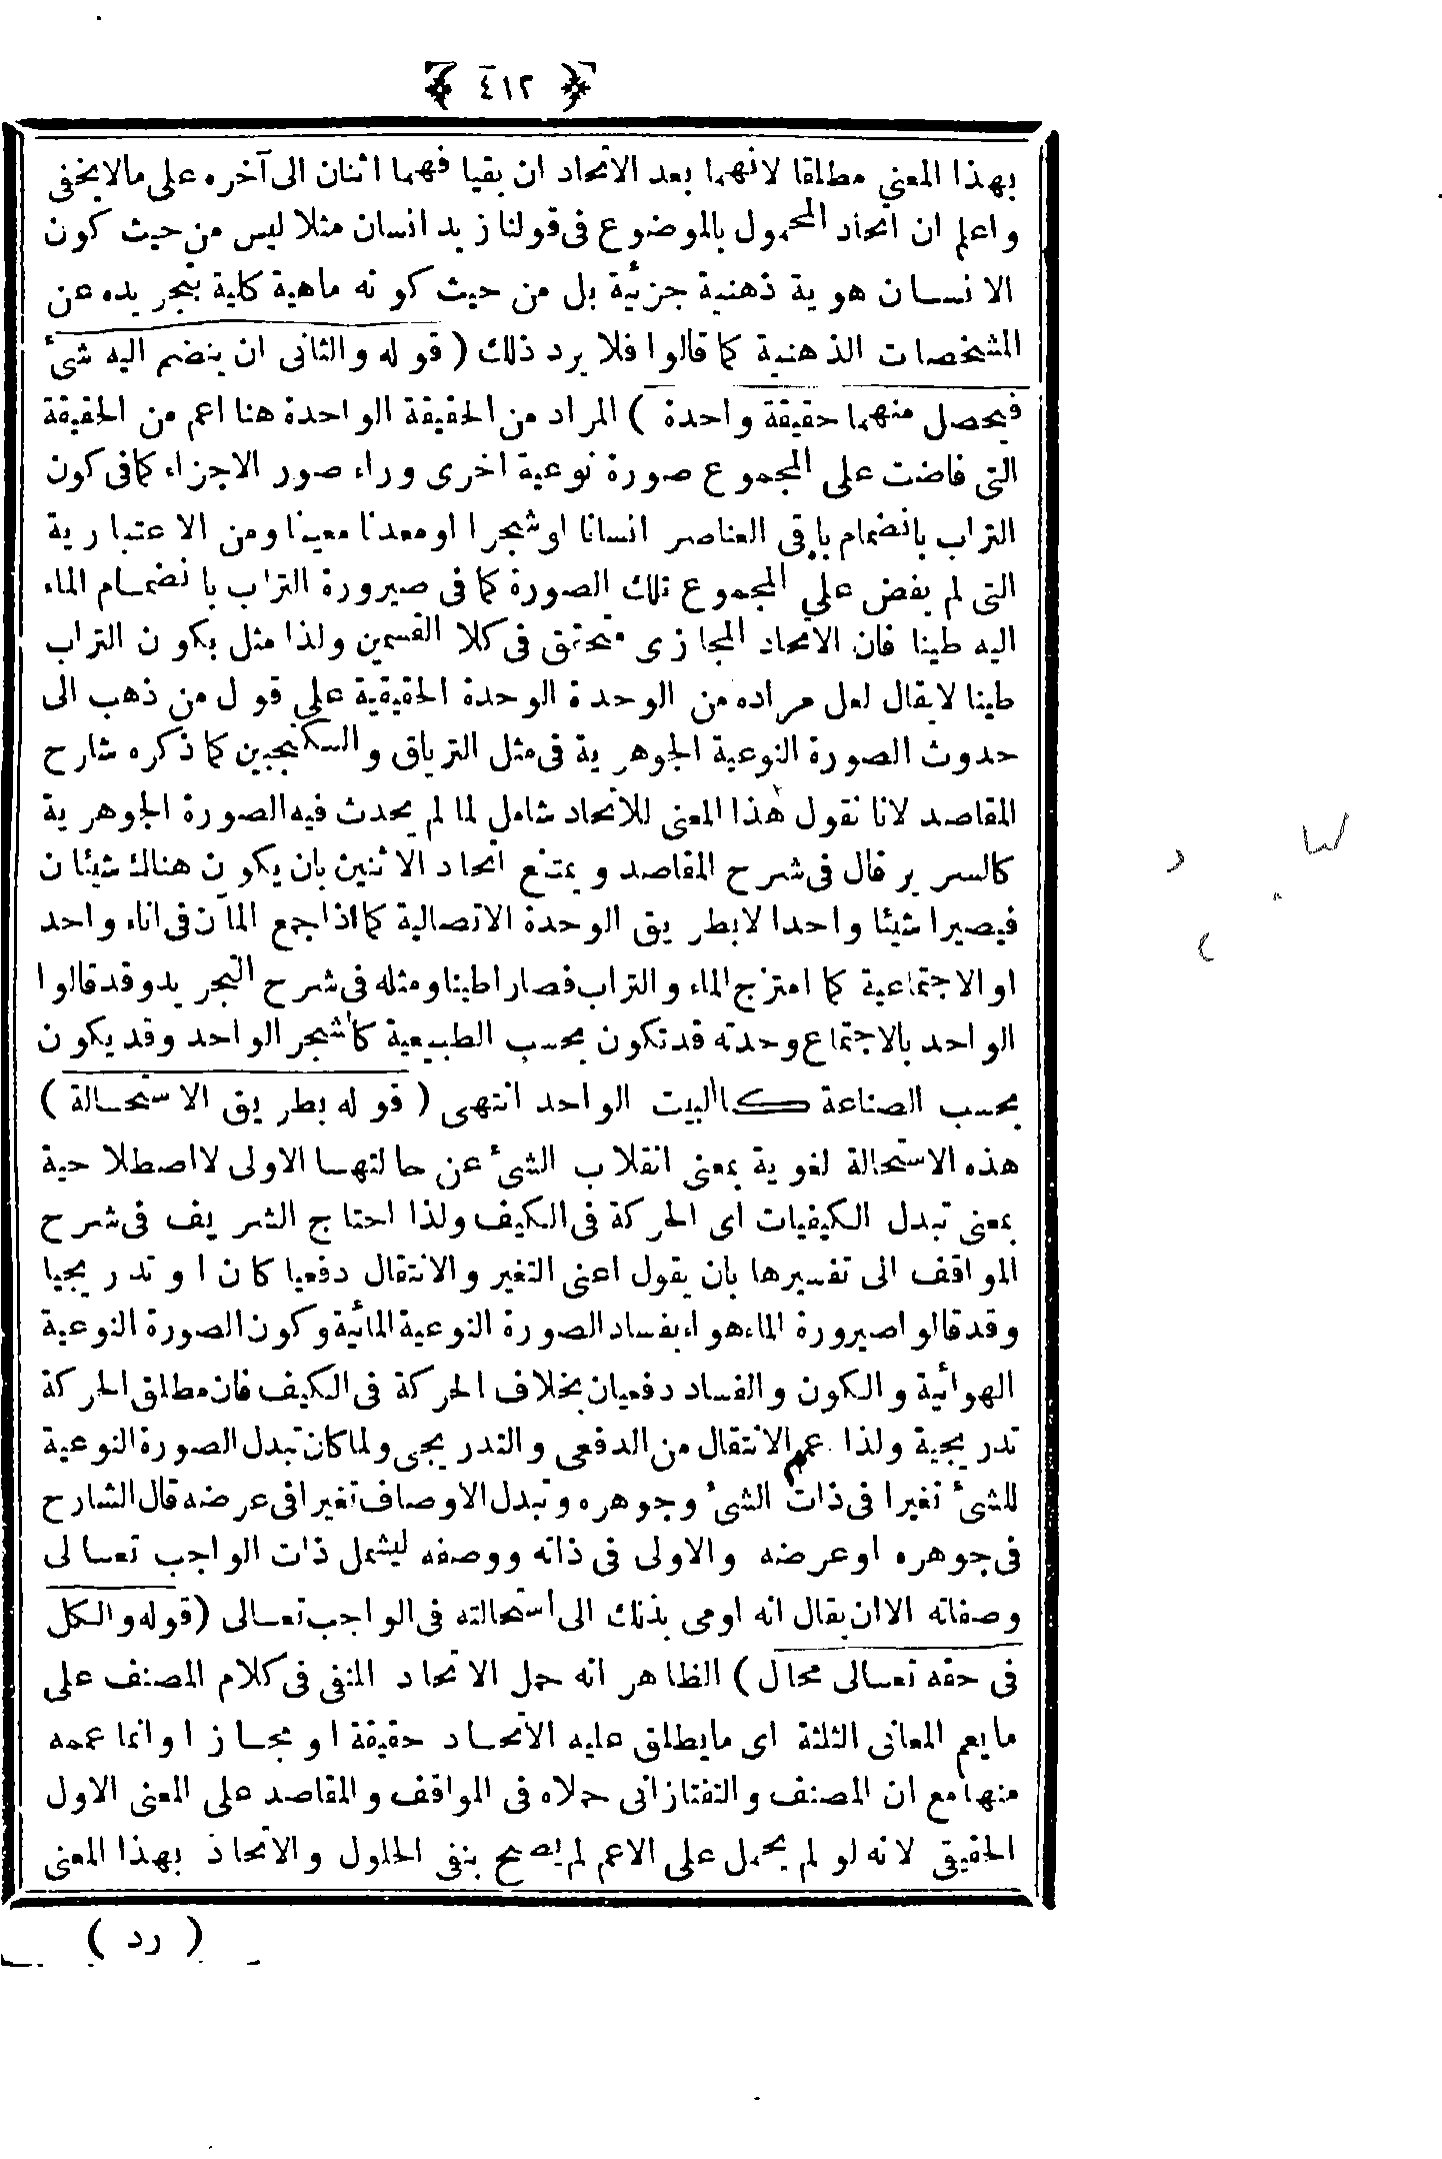 ﴿ ٤١٢ ﴾
بهذا المعنى مطلقا لانهما بعد الاتحاد ان بقيا فهما اثنان الى آخره على مالايخفى
واعلم ان اتحاد المحمول بالموضوع فى قولنا زيد انسان مثلا ليس من حيث كون
الانسان هوية ذهنية جزئية بل من حيث كونه ماهية كلية بتجريده عن
المشخصات الذهنية كما قالوا فلا يرد ذلك (قوله والثانى ان ينضم اليه شئ
فيحصل منهما حقيقة واحدة) المراد من الحقيقة الواحدة هنا اعم من الحقيقة
التى فاضت على المجموع صورة نوعية اخرى وراء صور الاجزاء كما فى كون
التراب بانضمام باقى العناصر انسانا او شجرا او معدنا معينا ومن الاعتبارية
التى لم يفض على المجموع تلك الصورة كما فى صيرورة التراب بانضمام الماء
اليه طينا فان الاتحاد المجازى متحقق فى كلا القسمين ولذا مثل بكون التراب
طينا لايقال لعل مراده من الوحدة الوحدة الحقيقية على قول من ذهب الى
حدوث الصورة النوعية الجوهرية فى مثل الترياق والسكنجبين كما ذكره شارح
المقاصد لانا نقول هذا المعنى للاتحاد شامل لما لم يحدث فيه الصورة الجوهرية
كالسرير قال فى شرح المقاصد ويمتنع اتحاد الاثنين بان يكون هناك شيئان
فيصيرا شيئا واحدا لابطريق الوحدة الاتصالية كما اذا جمع المآن فى اناء واحد
او الاجتماعية كما امتزج الماء والتراب فصارا طينا ومثله فى شرح التجريد وقد قالوا
الواحد بالاجتماع وحدته قد تكون بحسب الطبيعية كالشجر الواحد وقد يكون
بحسب الصناعة كالبيت الواحد انتهى (قوله بطريق الاستحالة)
هذه الاستحالة لغوية بمعنى انقلاب الشئ عن حالتها الاولى لااصطلاحية
بمعنى تبدل الكيفيات اى الحركة فى الكيف ولذا احتاج الشريف فى شرح
المواقف الى تفسيرها بان يقول اعنى التغير والانتقال دفعيا كان او تدريجيا
وقد قالوا صيرورة الماء هواء بفساد الصورة النوعية المائية وكون الصورة النوعية
الهوائية والكون والفساد دفعيان بخلاف الحركة فى الكيف فان مطلق الحركة
تدريجية ولذا عمم الانتقال من الدفعى والتدريجى ولما كان تبدل الصورة النوعية
للشئ تغيرا فى ذات الشئ وجوهره وتبدل الاوصاف تغيرا فى عرضه قال الشارح
فى جوهره او عرضه والاولى فى ذاته ووصفه ليشمل ذات الواجب تعالى
وصفاته الا ان يقال انه اومى بذلك الى استحالته فى الواجب تعالى (قوله والكل
فى حقه تعالى محال) الظاهر انه حمل الاتحاد المنفى فى كلام المصنف على
مايعم المعانى الثلثة اى مايطلق عليه الاتحاد حقيقة او مجازا وانما عممه
منها مع ان المصنف والتفتازانى حملاه فى المواقف والمقاصد على المعنى الاول
الحقيقى لانه لو لم يحمل على الاعم لم يصح بنفى الحلول والاتحاد بهذا المعنى
(رد)